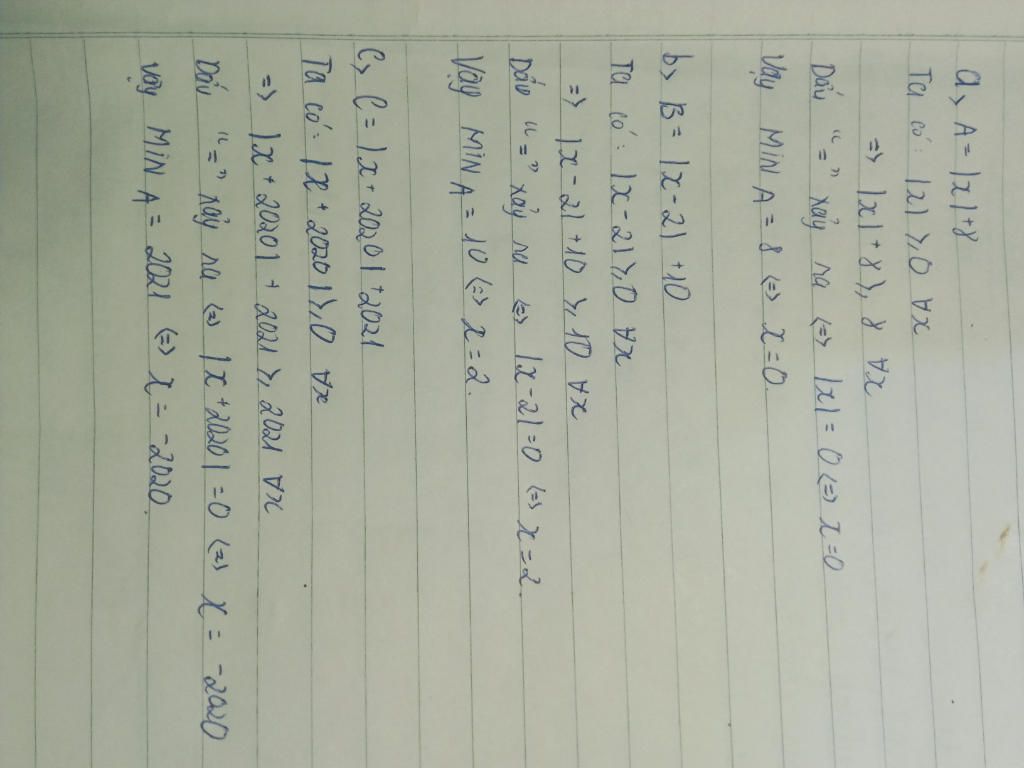 a, A = |x| + 8
Ta có: |x| ≥ 0 ∀x
=> |x| + 8 ≥ 8 ∀x
Dấu "=" xảy ra <=> |x| = 0 <=> x = 0
Vậy Min A = 8 <=> x = 0
b, B = |x - 2| + 10
Ta có: |x - 2| ≥ 0 ∀x
=> |x - 2| + 10 ≥ 10 ∀x
Dấu "=" xảy ra <=> |x - 2| = 0 <=> x = 2.
Vậy Min A = 10 <=> x = 2.
C, C = |x + 2020| + 2021
Ta có: |x + 2020| ≥ 0 ∀x
=> |x + 2020| + 2021 ≥ 2021 ∀x
Dấu "=" xảy ra <=> |x + 2020| = 0 <=> x = -2020
Vậy Min A = 2021 <=> x = -2020.